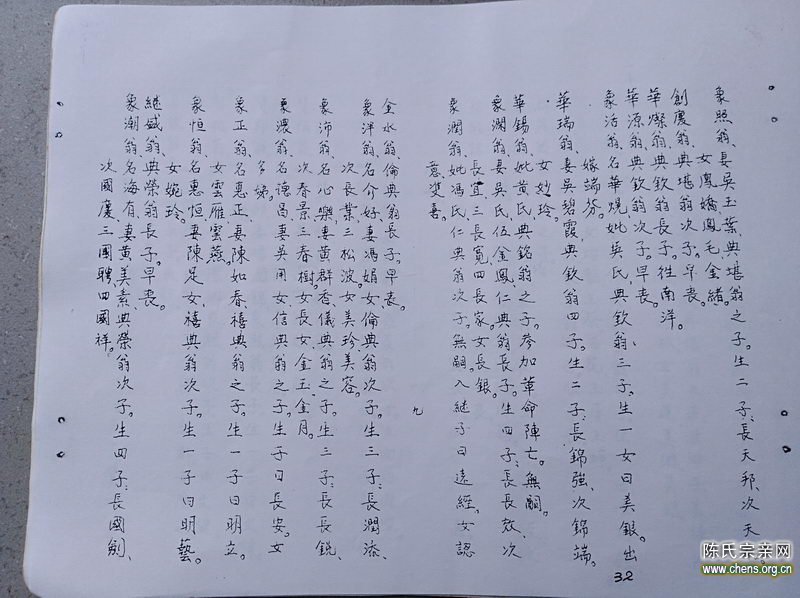 象照翁、妻吴玉葉典堪翁之子。生二子、長天邦、次天
女鳳嬌、鳳毛金緒。
創慶翁、典堪翁次子。早喪。
華燦翁、典欽翁長子。往南洋。
華源翁、典欽翁次子。早喪。
象活翁、名華焜妣吳氏典欽、翁、三子、生一女曰美銀。出
嫁端芬。
華瑞翁、妻吳碧霞、典欽翁四子、生二子、長錦強、次錦端。
女妙玲。
華錫翁、妣黃氏典銘翁之子。參加革命陣亡。無嗣。
象瀾翁、妻吳氏、伍金鳳、仁典翁長子。生四子、長長效、次
長宣、三長寬、四長家。女長銀。
象潤翁、妣馮氏、仁典翁次子。無嗣。入継子曰遠經。女認
意雙喜。
九
全水翁、倫典翁長子。早喪。
象泮翁、名介好、妻馮娟女、倫典翁次子。生三子、長潤添、
次長業、三松波。女美珍、美容。
象沛翁、名心樂、妻黃群香、儀典翁之子。生三子、長長銳、
次春景、三春樹。女長女金玉、金月。
象濃翁、名德昌、妻吴用女、信典翁之子。生子曰長安。女
多娣。
象正翁、名惠正、妻陳如春、禧典翁之子。生一子曰明立。
女雲雁、雲燕
象恒翁、名惠恒、妻陳足女、禧典翁次子。生一子曰明藝。
女婉玲。
継盛翁、典榮翁長子。早喪。
象潮翁、名海有、妻黃美素、典榮翁次子。生四子、長國劍、
次國慶、三國聘、四國祥。
32
陈氏宗亲网
www.chens.org.cn